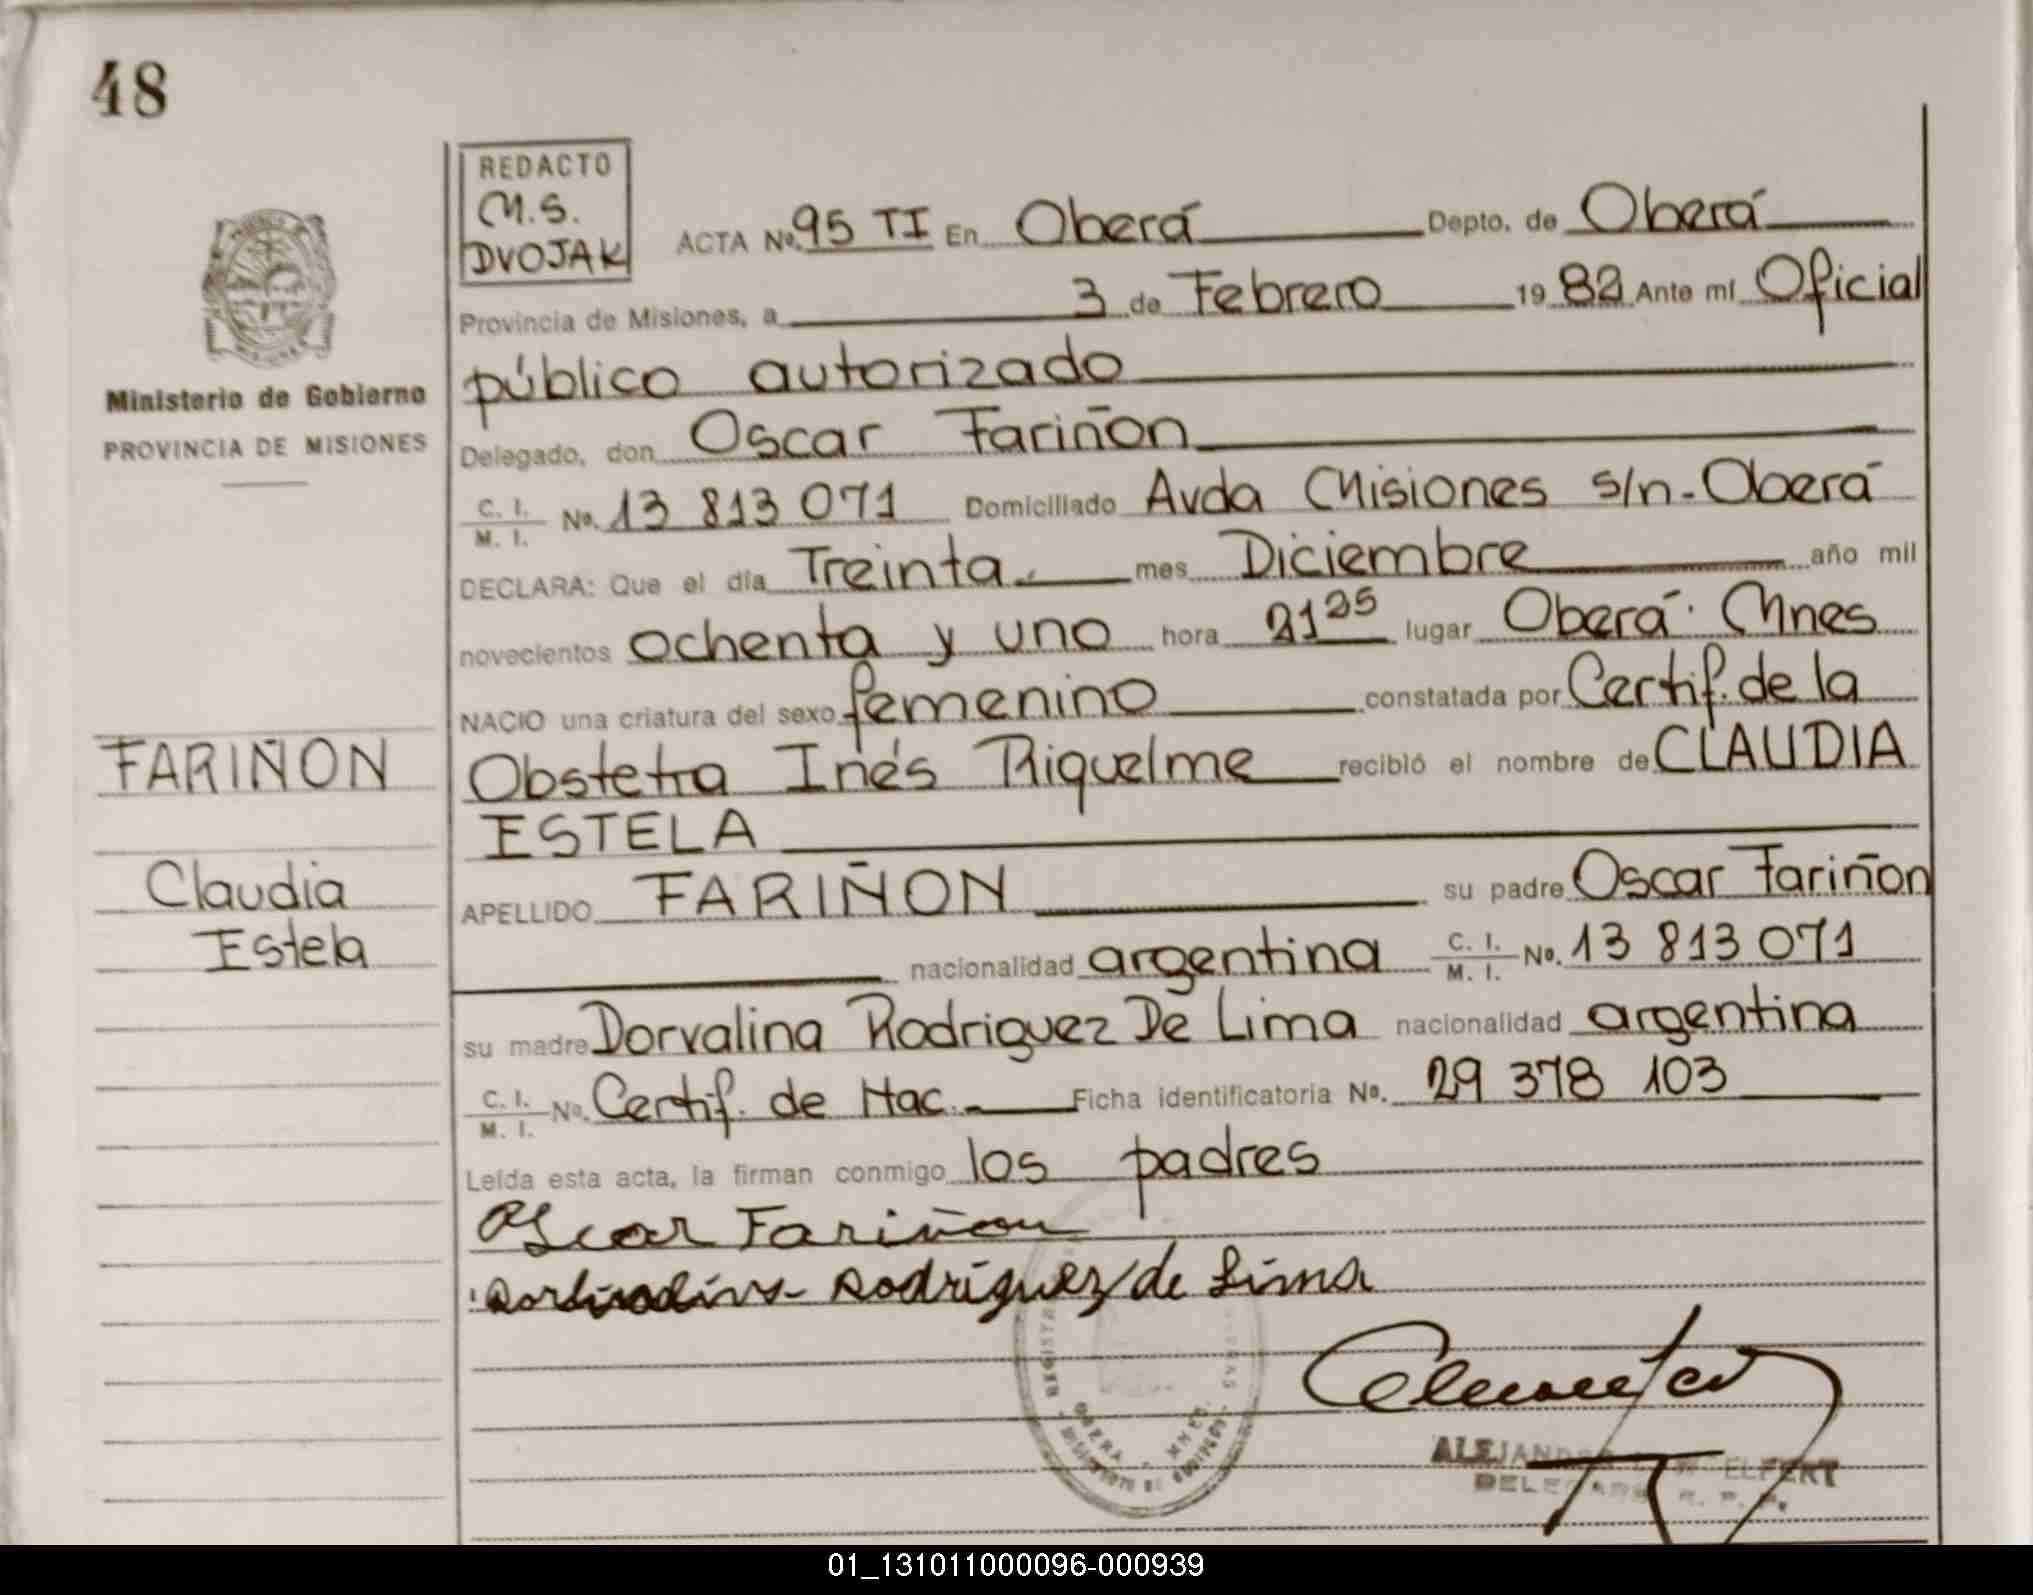 48
REDACTO
M.S.
DVOJAK
ACTA No. 95 TI En Oberá Depto. de Oberá
Provincia de Misiones, a 3 de Febrero 1982 Ante mí Oficial
público autorizado
Delegado, don Oscar Fariñon
C. I. / M. I. No. 13 813 071 Domiciliado Avda Misiones s/n - Oberá
DECLARA: Que el día Treinta mes Diciembre año mil
novecientos ochenta y uno hora 21 25 lugar Oberá. Mnes
NACIO una criatura del sexo femenino constatada por Certif. de la
Obstetra Inés Riquelme recibió el nombre de CLAUDIA
ESTELA
APELLIDO FARIÑON su padre Oscar Fariñon
nacionalidad argentina C. I. / M. I. No. 13 813 071
su madre Dorvalina Rodriguez De Lima nacionalidad argentina
C. I. / M. I. No. Certif. de Nac. Ficha identificatoria No. 29 378 103
Leída esta acta, la firman conmigo los padres
Oscar Fariñon
Rodríguez de Lima
Ministerio de Gobierno
PROVINCIA DE MISIONES
FARIÑON
Claudia
Estela
OBERA - MNES.
01_131011000096-000939